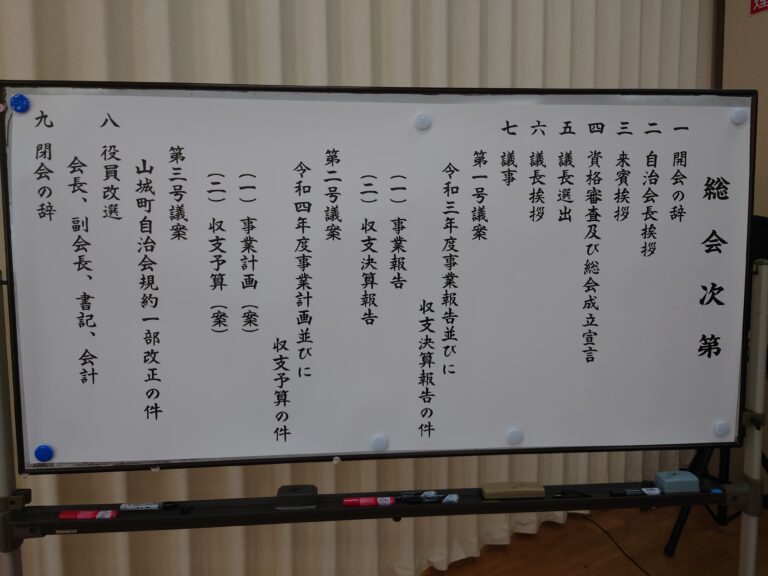 総会次第
一 開会の辞
二 自治会長挨拶
三 来賓挨拶
四 資格審査及び総会成立宣言
五 議長選出
六 議長挨拶
七 議事
第一号議案
令和三年度事業報告並びに
収支決算報告の件
（一）事業報告
（二）収支決算報告
第二号議案
令和四年度事業計画並びに
収支予算の件
（一）事業計画（案）
（二）収支予算（案）
第三号議案
山城町自治会規約一部改正の件
八 役員改選
会長、副会長、書記、会計
九 閉会の辞